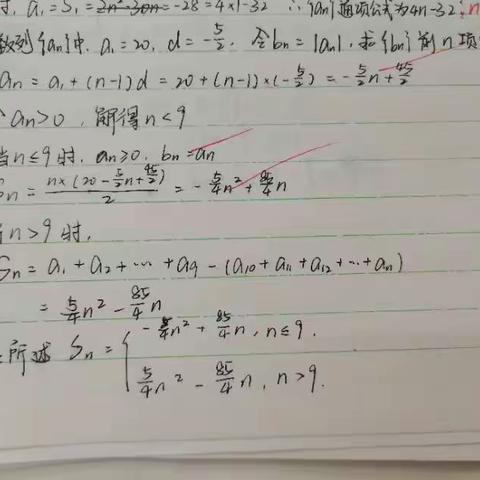 a₁ = S₁ = 2n²-30n = -28 = 4×1-32 ∴ {an}通项公式为4n-32 n
数列{an}中, a₁ = 20, d = -5/2, 令bn = |an|, 求{bn}前n项
an = a₁ + (n-1)d = 20 + (n-1)×(-5/2) = -5/2n + 45/2
an>0, 解得n<9
当n≤9时, an≥0, bn=an
Sn = n×(20 - 5/2n + 45/2)/2 = -5/4n² + 85/4n
n>9时,
Sn = a₁ + a₂ + … + a₉ - (a₁₀ + a₁₁ + a₁₂ + … + an)
= 5/4n² - 85/4n
所述 Sn = { -5/4n² + 85/4n, n≤9.
5/4n² - 85/4n, n>9.